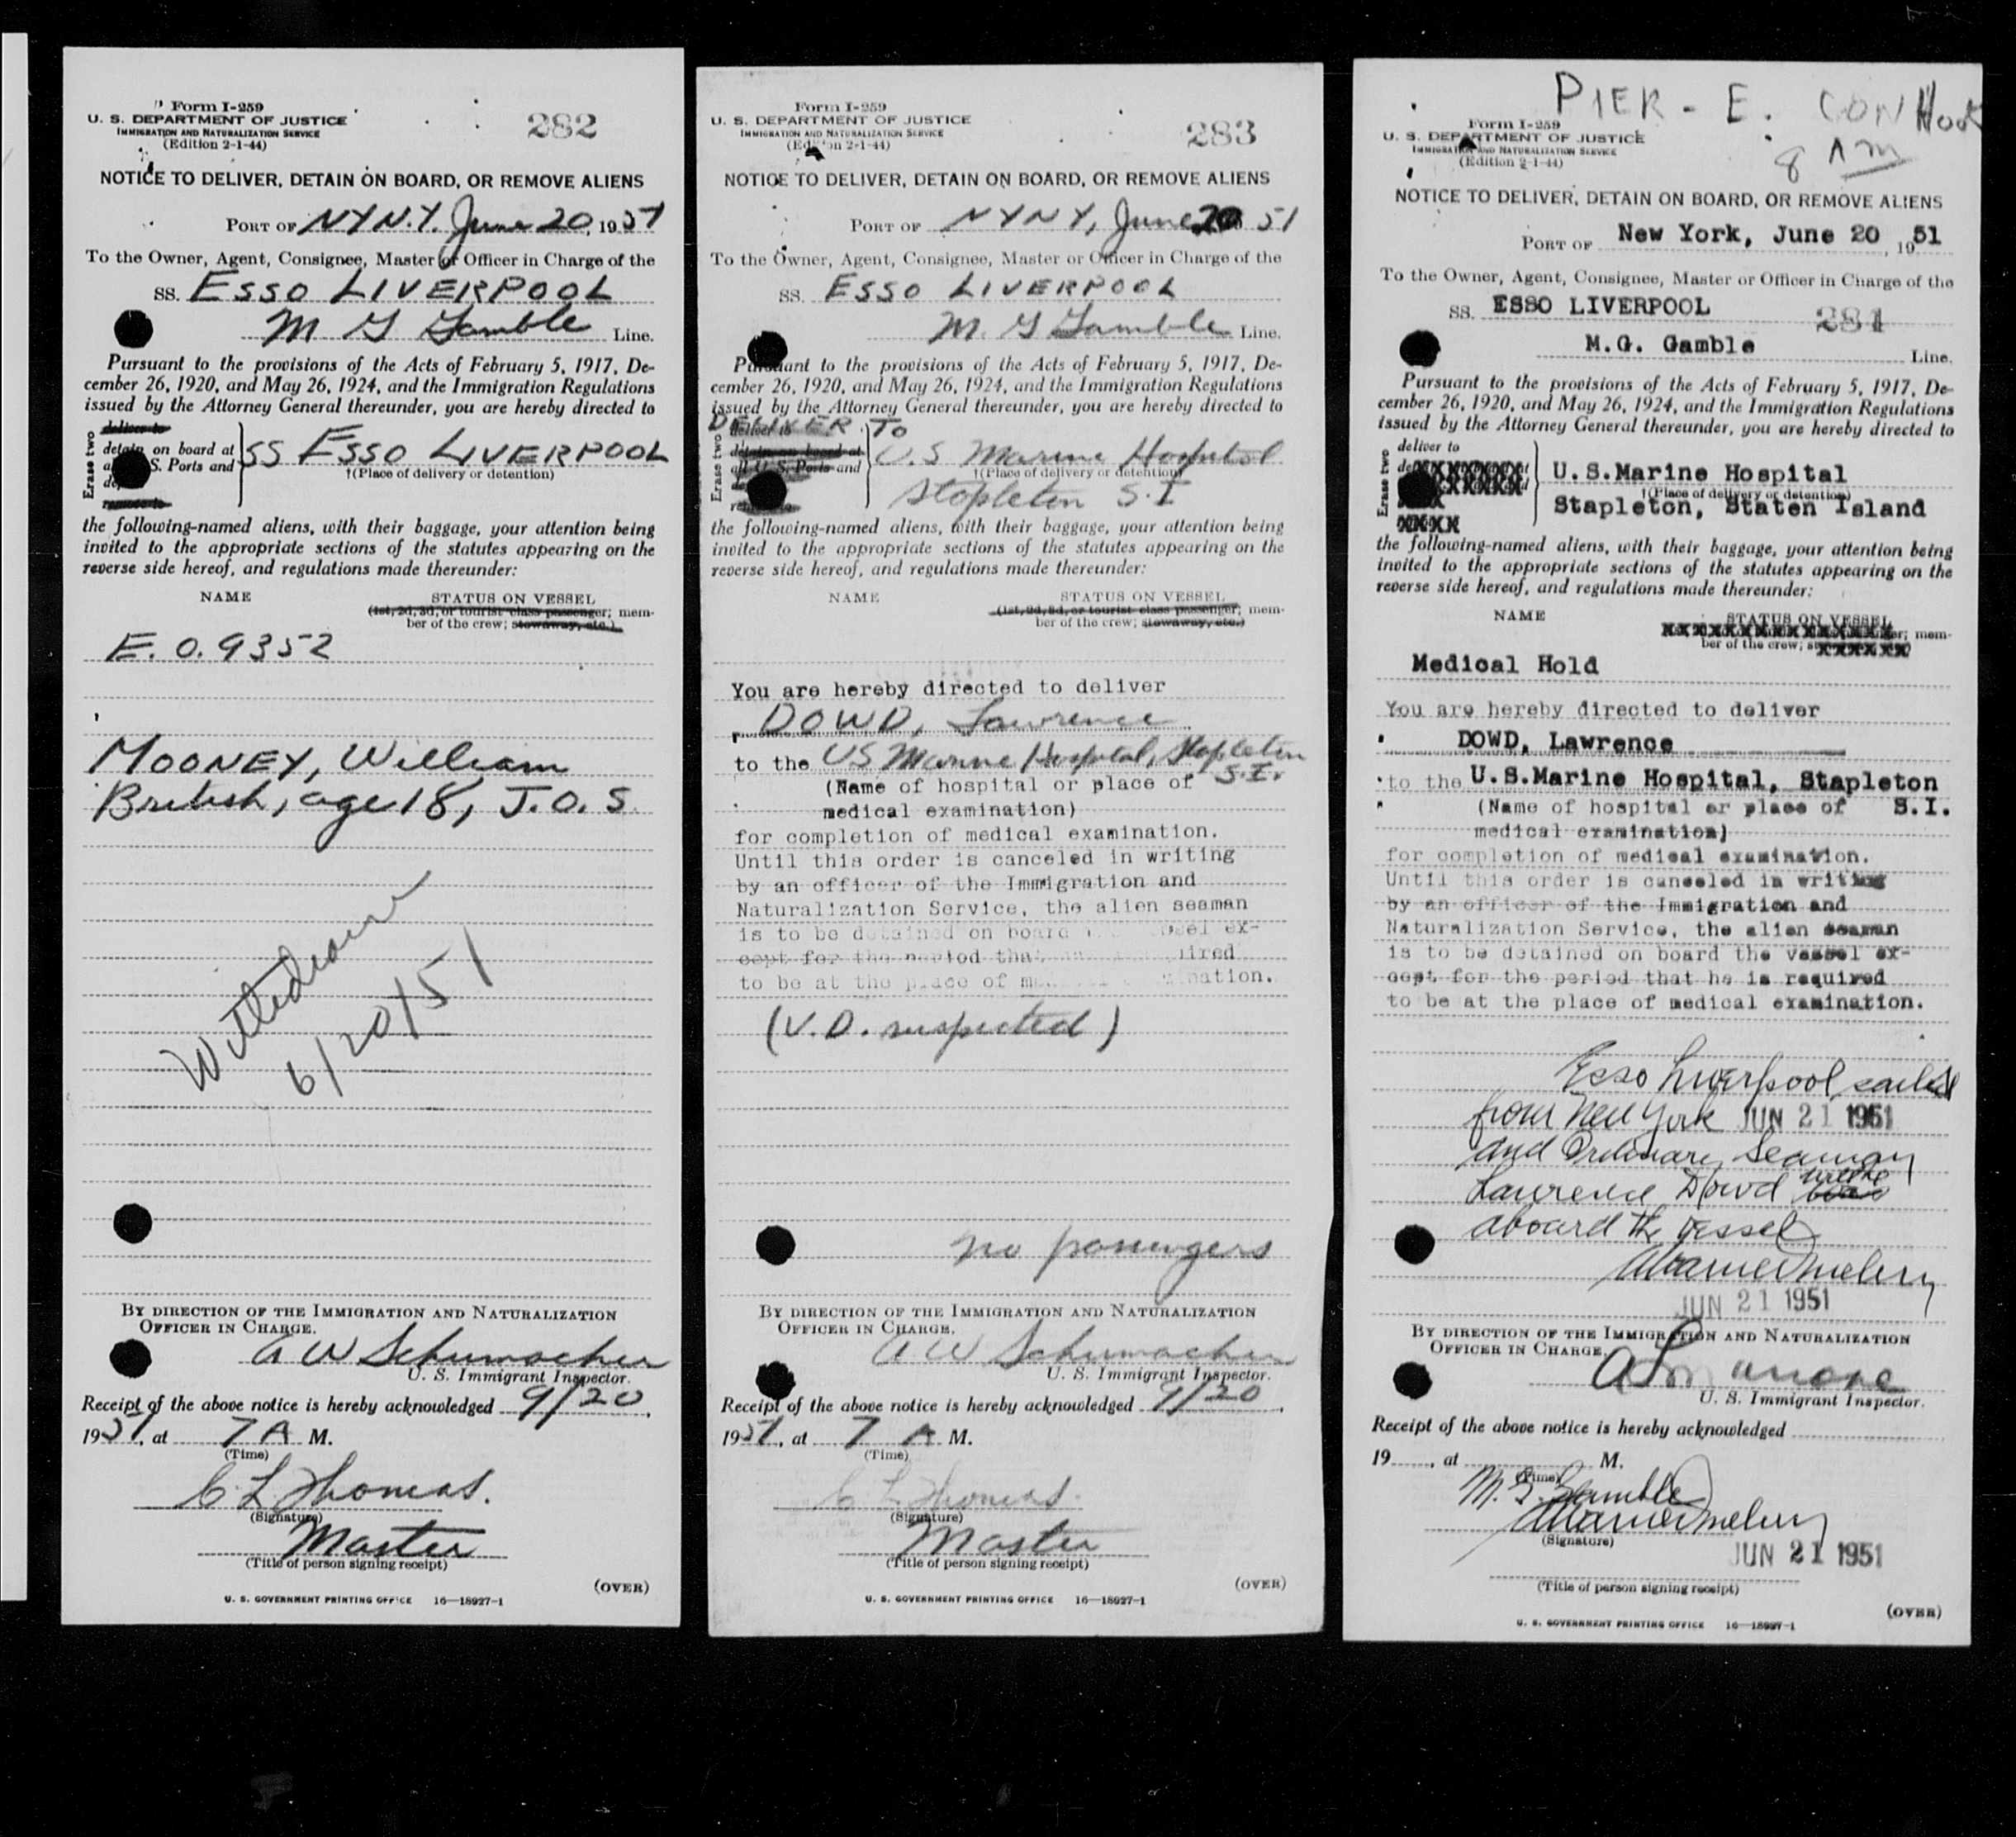 Form I-259
U. S. DEPARTMENT OF JUSTICE
IMMIGRATION AND NATURALIZATION SERVICE
(Edition 2-1-44)
282
NOTICE TO DELIVER, DETAIN ON BOARD, OR REMOVE ALIENS
PORT OF NY N.Y. June 20, 1951
To the Owner, Agent, Consignee, Master or Officer in Charge of the
SS. ESSO LIVERPOOL
M G Gamble Line.
Pursuant to the provisions of the Acts of February 5, 1917, De-
cember 26, 1920, and May 26, 1924, and the Immigration Regulations
issued by the Attorney General thereunder, you are hereby directed to
Erase two
deliver to
detain on board at
S. Ports and
SS ESSO LIVERPOOL
†(Place of delivery or detention)
remove to
the following-named aliens, with their baggage, your attention being
invited to the appropriate sections of the statutes appearing on the
reverse side hereof, and regulations made thereunder:
NAME STATUS ON VESSEL
(1st, 2d, 3d, or tourist class passenger; mem-
ber of the crew; stowaway, etc.)
E. O. 9352
MOONEY, William
British, age 18, J.O.S.
Withdrawn
6/20/51
BY DIRECTION OF THE IMMIGRATION AND NATURALIZATION
OFFICER IN CHARGE.
A W Schumacher
U. S. Immigrant Inspector.
Receipt of the above notice is hereby acknowledged 9/20,
1951, at 7 A M.
(Time)
C L Thomas.
(Signature)
Master
(Title of person signing receipt)
(OVER)
U. S. GOVERNMENT PRINTING OFFICE 16—18927-1
Form I-259
U. S. DEPARTMENT OF JUSTICE
IMMIGRATION AND NATURALIZATION SERVICE
(Edition 2-1-44)
283
NOTICE TO DELIVER, DETAIN ON BOARD, OR REMOVE ALIENS
PORT OF NY NY, June 20 51
To the Owner, Agent, Consignee, Master or Officer in Charge of the
SS. ESSO LIVERPOOL
M. G Gamble Line.
Pursuant to the provisions of the Acts of February 5, 1917, De-
cember 26, 1920, and May 26, 1924, and the Immigration Regulations
issued by the Attorney General thereunder, you are hereby directed to
DELIVER TO
Erase two
deliver to
detain on board at
all U. S. Ports and
U.S Marine Hospital
†(Place of delivery or detention)
Stapleton S.I
the following-named aliens, with their baggage, your attention being
invited to the appropriate sections of the statutes appearing on the
reverse side hereof, and regulations made thereunder:
NAME STATUS ON VESSEL
(1st, 2d, 3d, or tourist class passenger; mem-
ber of the crew; stowaway, etc.)
You are hereby directed to deliver
DOWD, Lawrence
to the US Marine Hospital, Stapleton
S.I.
(Name of hospital or place of
medical examination)
for completion of medical examination.
Until this order is canceled in writing
by an officer of the Immigration and
Naturalization Service, the alien seaman
is to be detained on board ex-
cept for the period that
to be at the place of
(V.D. suspected)
no passengers
BY DIRECTION OF THE IMMIGRATION AND NATURALIZATION
OFFICER IN CHARGE.
A W Schumacher
U. S. Immigrant Inspector.
Receipt of the above notice is hereby acknowledged 9/20,
1951, at 7 A M.
(Time)
C L Thomas.
(Signature)
Master
(Title of person signing receipt)
(OVER)
U. S. GOVERNMENT PRINTING OFFICE 16—18927-1
PIER - E. CON Hook
8 AM
Form I-259
U. S. DEPARTMENT OF JUSTICE
IMMIGRATION AND NATURALIZATION SERVICE
(Edition 2-1-44)
NOTICE TO DELIVER, DETAIN ON BOARD, OR REMOVE ALIENS
PORT OF New York, June 20, 1951
To the Owner, Agent, Consignee, Master or Officer in Charge of the
SS. ESSO LIVERPOOL
284
M.G. Gamble Line.
Pursuant to the provisions of the Acts of February 5, 1917, De-
cember 26, 1920, and May 26, 1924, and the Immigration Regulations
issued by the Attorney General thereunder, you are hereby directed to
Erase two
deliver to
U.S.Marine Hospital
†(Place of delivery or detention)
Stapleton, Staten Island
the following-named aliens, with their baggage, your attention being
invited to the appropriate sections of the statutes appearing on the
reverse side hereof, and regulations made thereunder:
NAME STATUS ON VESSEL
mem-
ber of the crew;
Medical Hold
You are hereby directed to deliver
DOWD, Lawrence
to the U.S.Marine Hospital, Stapleton
(Name of hospital or place of S.I.
medical examination)
for completion of medical examination.
Until this order is canceled in writing
by an officer of the Immigration and
Naturalization Service, the alien seaman
is to be detained on board the vessel ex-
cept for the period that he is required
to be at the place of medical examination.
Esso Liverpool sailed
from New York JUN 21 1951
and Ordinary Seaman
Lawrence Dowd
aboard the vessel
JUN 21 1951
BY DIRECTION OF THE IMMIGRATION AND NATURALIZATION
OFFICER IN CHARGE.
U. S. Immigrant Inspector.
Receipt of the above notice is hereby acknowledged
19 , at M.
(Time)
M. G. Gamble
(Signature)
JUN 21 1951
(Title of person signing receipt)
(OVER)
U. S. GOVERNMENT PRINTING OFFICE 16—18927-1